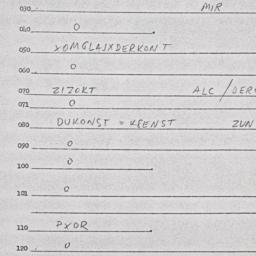 030 MIR
040 0
050 XOMGLAJXDERKONT
060 0
070 ZIZOKT ALC/DER
071 0
080 DUKONST = KEENST ZUN
090 0
100 0
101 0
110 PXOR
120 0